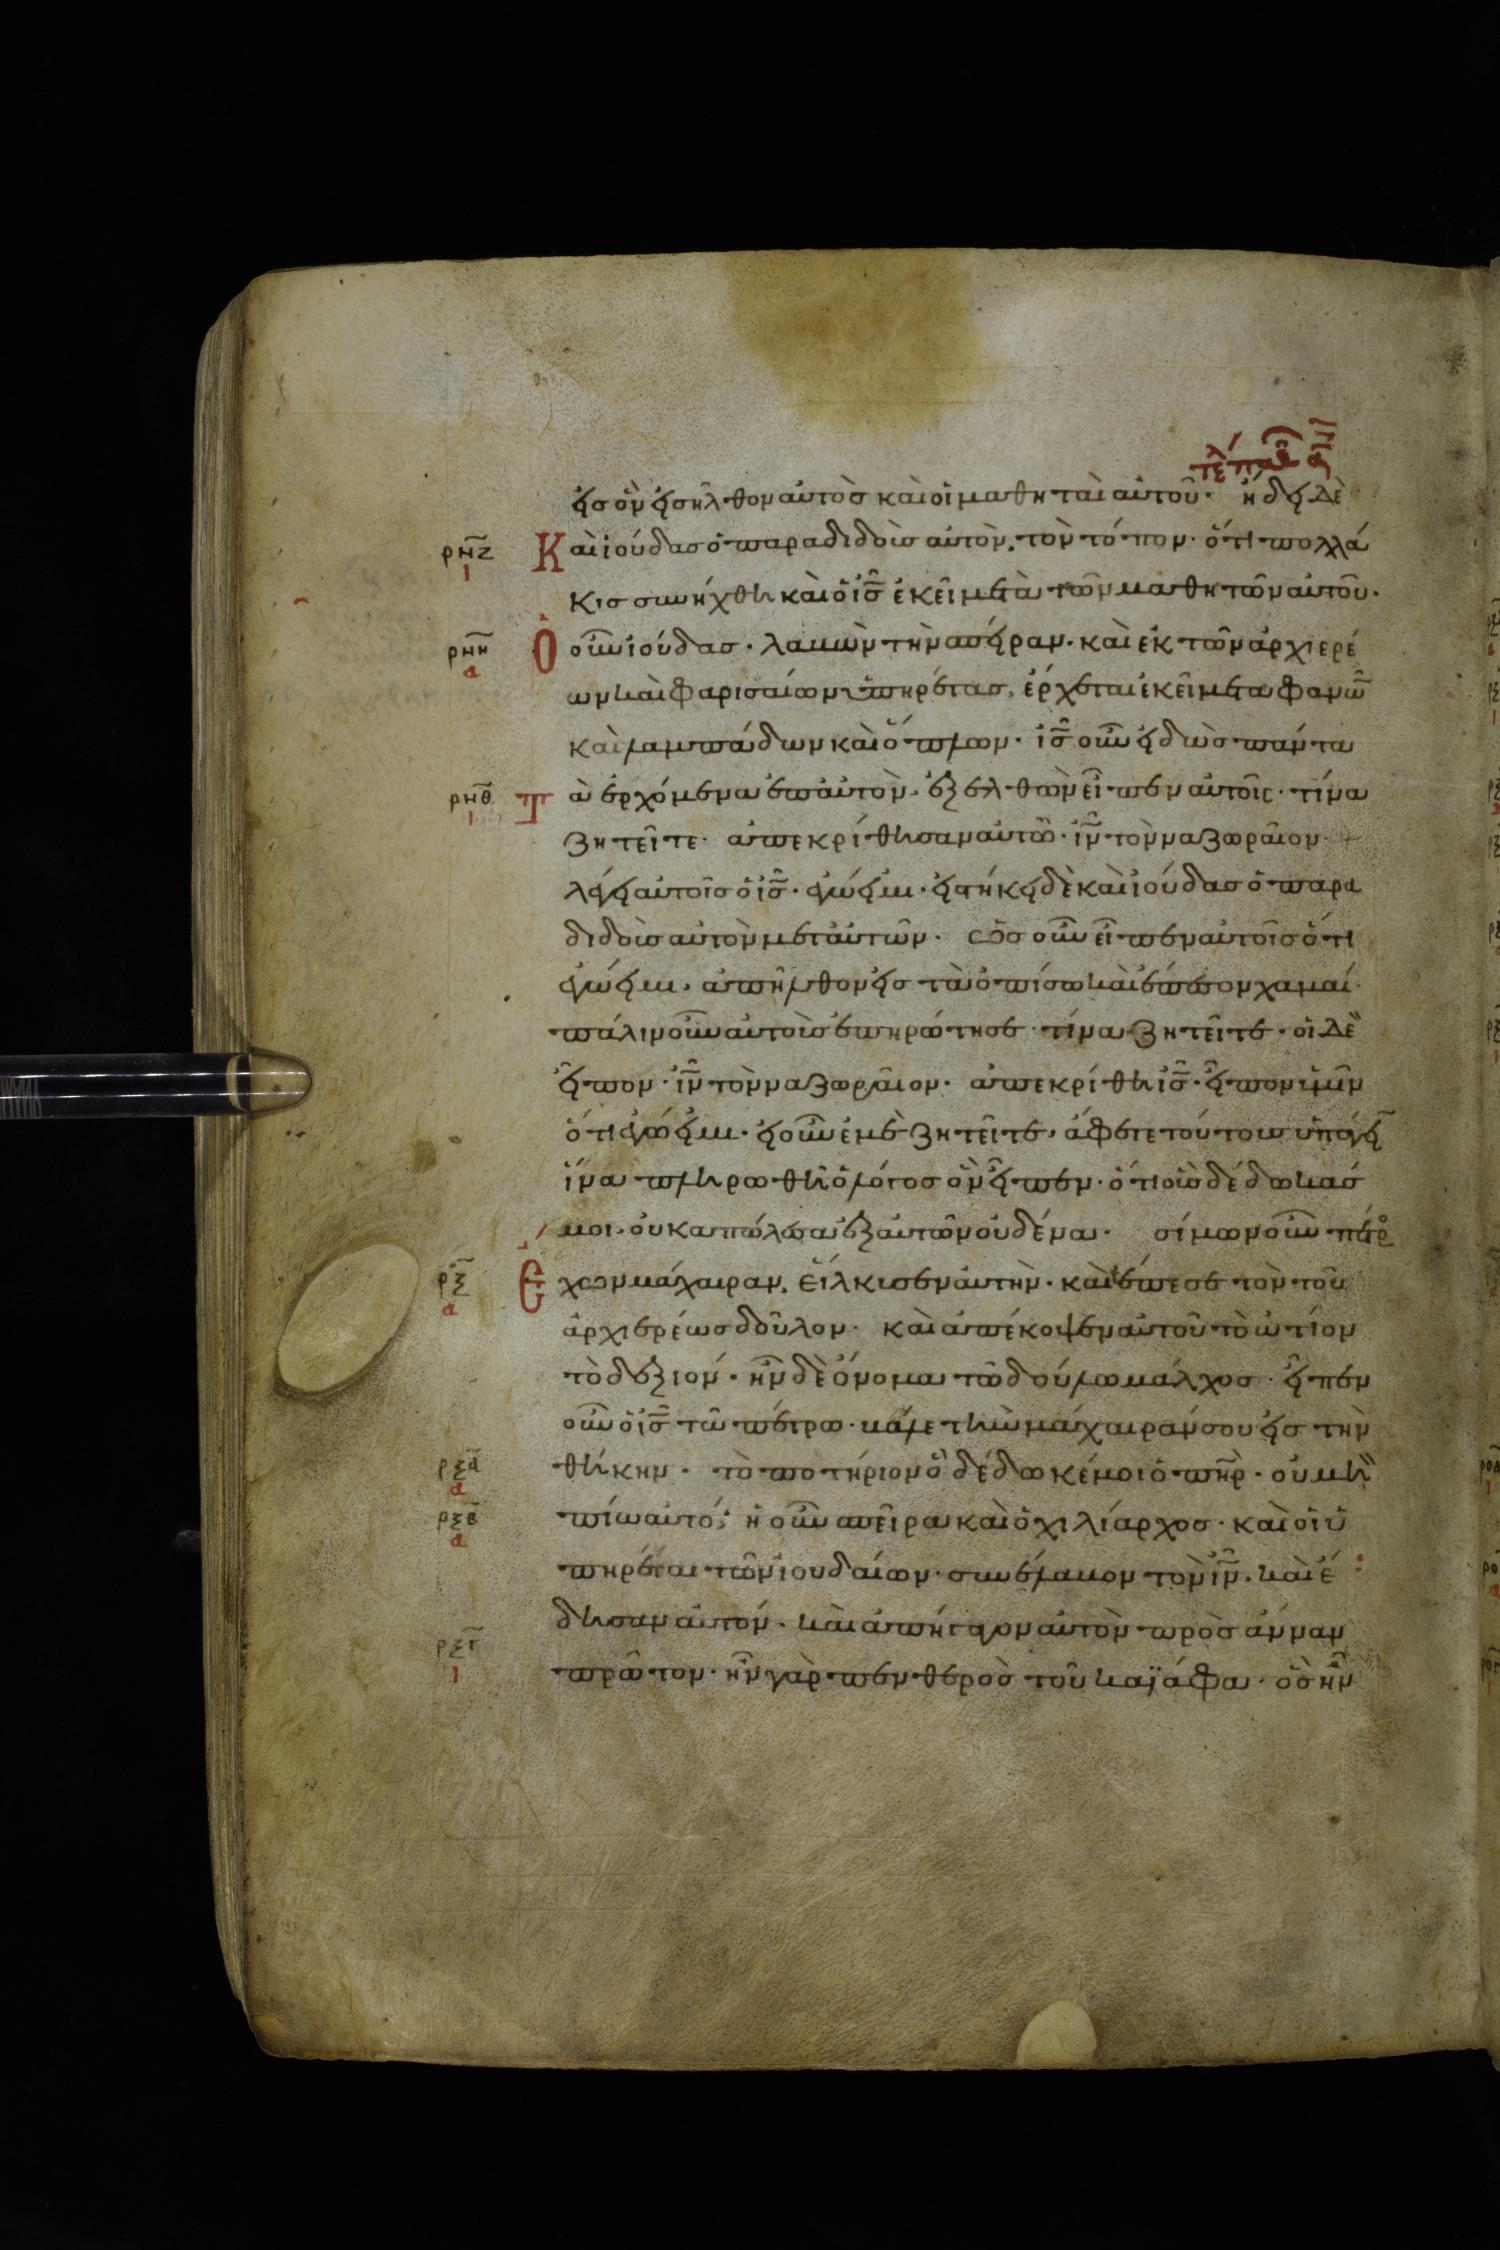 εἰς ὃν εἰσῆλθον αὐτὸς καὶ οἱ μαθηταὶ αὐτοῦ· ἤδει δὲ
ρνζ Καὶ ἰούδας ὁ παραδιδοὺς αὐτὸν, τὸν τόπον· ὅτι πολλά
ι κις συνήχθη καὶ ὁ ι̅ς̅ ἐκεῖ μετὰ τῶν μαθητῶν αὐτοῦ·
ρνη Ὁ οὖν ἰούδας· λαβὼν τὴν σπεῖραν· καὶ ἐκ τῶν ἀρχιερέ
α ων καὶ φαρισαίων ὑπηρέτας, ἔρχεται ἐκεῖ μετα φανῶ
καὶ λαμπάδων καὶ ὅπλων· ι̅ς̅ οὖν εἰδὼς πάντα
ρνθ Τὰ ἐρχόμενα ἐπ αὐτὸν· ἐξελθὼν εἶπεν αὐτοῖς· τίνα
ι ζητεῖτε· ἀπεκρίθησαν αὐτῶ· ι̅ν̅ τὸν ναζωραῖον·
λέγει αὐτοῖς ὁ ι̅ς̅· ἐγώ εἰμι· εἱστήκει δὲ καὶ ἰούδας ὁ παρα
διδοὺς αὐτὸν μετ αὐτῶν· ὡς οὖν εἶπεν αὐτοῖς ὅτι
ἐγώ εἰμι, ἀπῆλθον εἰς τὰ ὀπίσω καὶ ἔπεσον χαμαί·
πάλιν οὖν αὐτοὺς ἐπηρώτησε· τίνα ζητεῖτε· οἱ δὲ
εἶπον· ι̅ν̅ τὸν ναζωραῖον· ἀπεκρίθη ι̅ς̅· εἶπον ὑμῖν
ὅτι ἐγώ εἰμι· εἰ οὖν ἐμὲ ζητεῖτε, ἄφετε τούτους ὑπάγει̅
ἵνα πληρωθῆ ὁ λόγος ὃν εἶπεν· ὅτι οὓς δέδωκάς
μοι· οὐκ απώλεσα ἐξ αὐτῶν οὐδένα· σίμων οὖν πέτρο
ρξ Ἔχων μάχαιραν, εἵλκισεν αὐτὴν· καὶ ἔπεσε τὸν τοῦ
α ἀρχιερέως δοῦλον· καὶ ἀπέκοψεν αὐτοῦ τὸ ὠτίον
τὸ δεξιόν· ἦν δὲ ὄνομα τῶ δούλω μάλχος· εἶπεν
οὖν ὁ ι̅ς̅ τῶ πέτρω· βάλε τὴν μάχαιράν σου εἰς τὴν
ρξα θήκην· τὸ ποτήριον ὃ δέδωκέ μοι ὁ π̅η̅ρ̅· οὐ μὴ
α
ρξβ πίω αὐτό; ἡ οὖν σπεῖρα καὶ ὁ χιλίαρχος· καὶ οἱ ὑ
α πηρέται τῶν ἰουδαίων· συνέλαβον τὸν ι̅ν̅· καὶ ἔ
δησαν αὐτόν· καὶ ἀπήγαγον αὐτὸν πρὸς ἄνναν
ρξγ
ι πρῶτον· ἦν γὰρ πενθερὸς τοῦ καϊάφα· ὃς ἦν